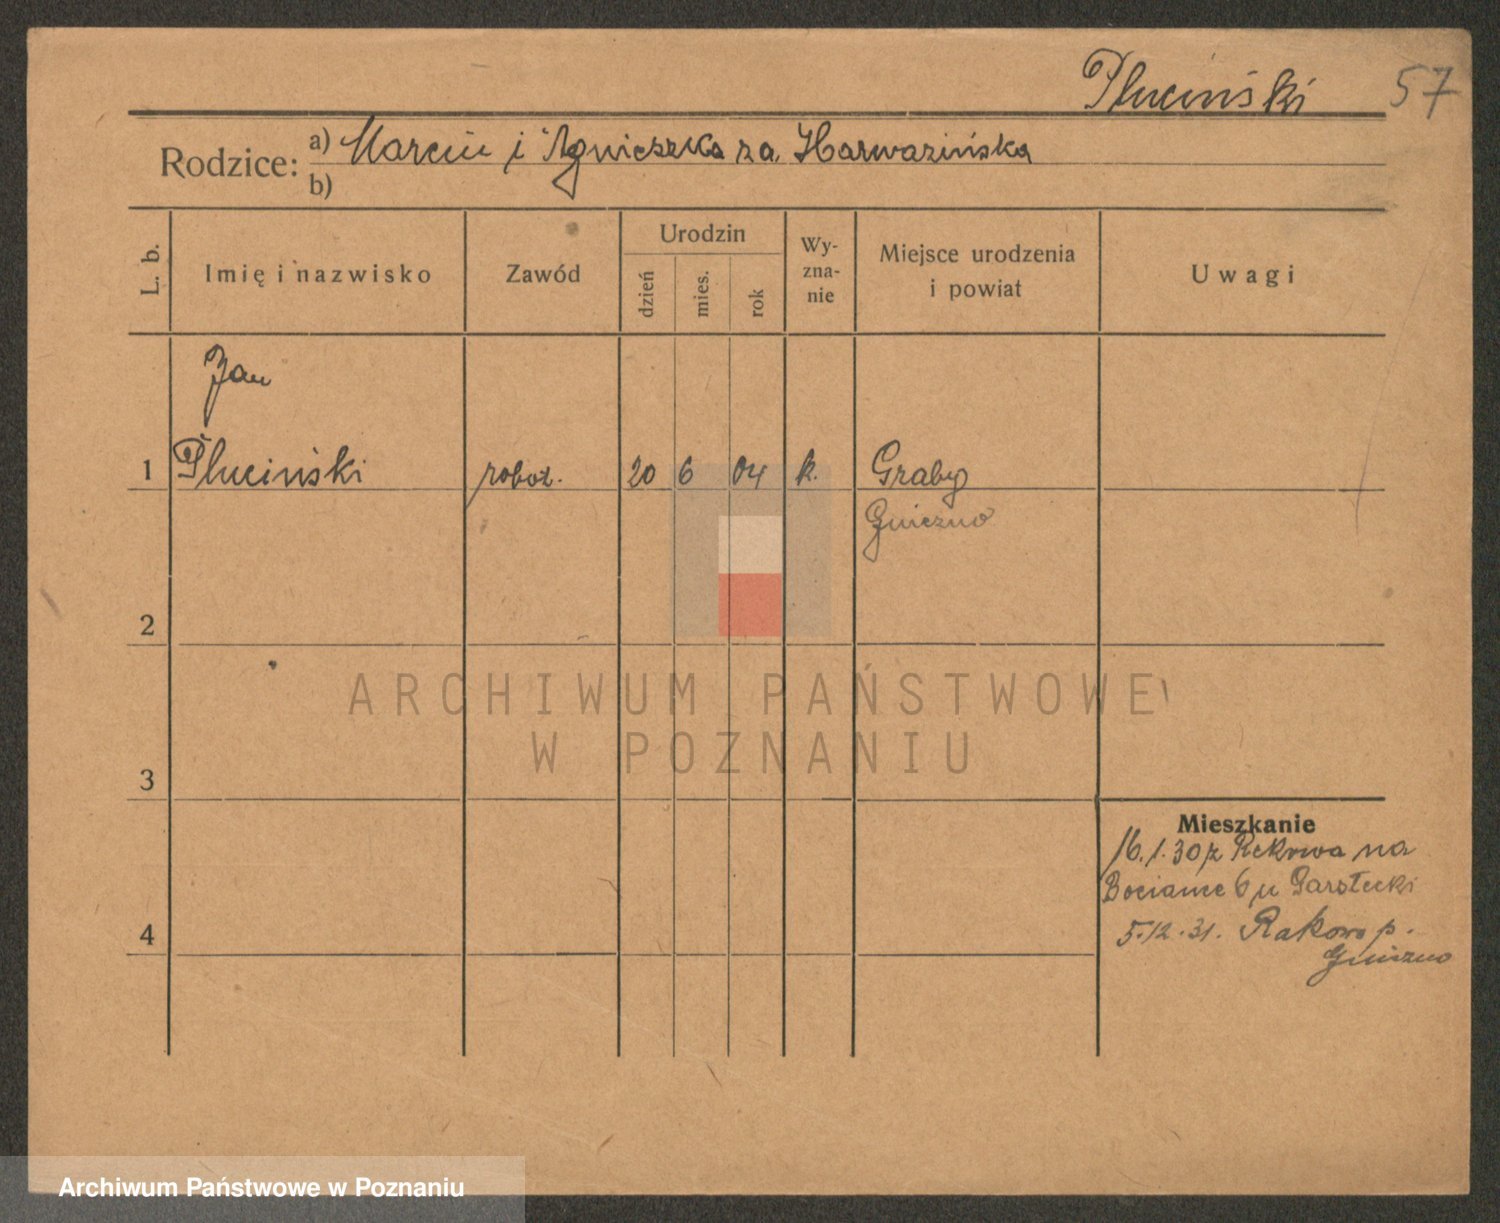 Pluciński 57
Rodzice: a) Marcin i Agnieszka za. Harwazińska
b)
L. b. Imię i nazwisko Zawód Urodzin dzień mies. rok Wyznanie Miejsce urodzenia i powiat Uwagi
Jan
1 Pluciński robot. 20 6 04 k. Graby
Gniezno
2
ARCHIWUM PAŃSTWOWE
W POZNANIU
3
Mieszkanie
16.1.30 z Rekowa na
Bocianie 6 u Garstecki
4 5.12.31. Rakowo p.
Gniezno
Archiwum Państwowe w Poznaniu